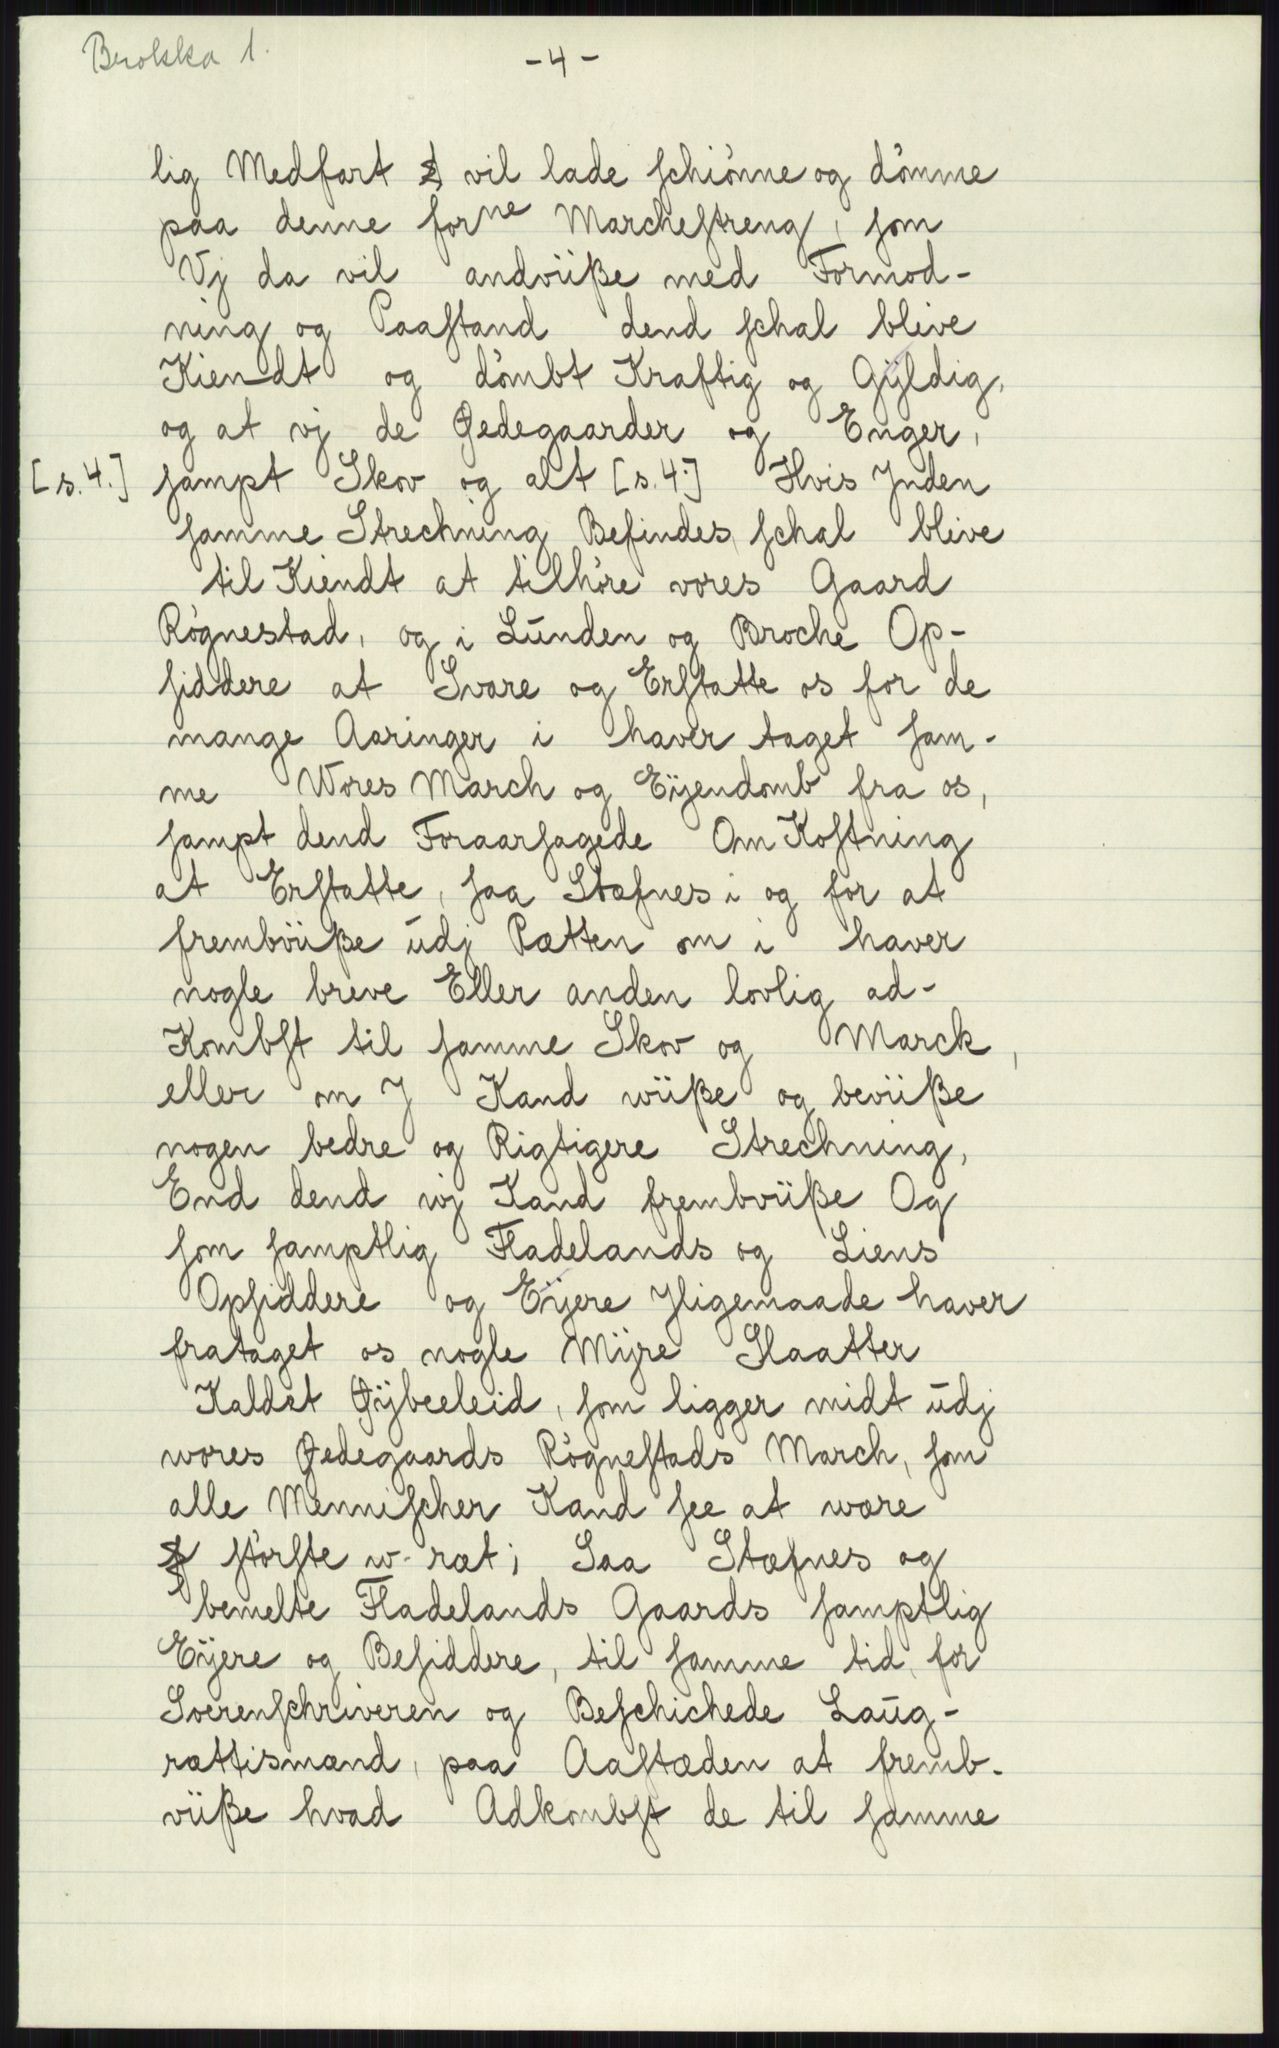 Brokka 1.
- 4 -
lig Medfart vil lade schiònne og dòmme
paa denne forne Marchestreng, som
Vj da vil andvüße med Formod-
ning og Paastand dend schal blive
Kiendt og dòmbt Kraftig og Gÿldig,
og at vj de Ødegaarder og Enger,
[s. 4.] sampt Skov og alt [s. 4.] Hvis Jnden
samme Strechning Befindes, schal blive
til Kiendt at tilhòre vores Gaard
Rògnestad, og i Lunden og Broche Op-
siddere at Svare og Erstatte os for de
mange Aaringer i haver taget sam-
me Wores March og Eÿendomb fra os,
sampt dend Foraarsagede Om Kostning
at Erstatte, saa Stæfnes i og for at
frembvüße üdj Rætten om i haver
nogle breve Eller anden lovlig ad-
Kombst til samme Skov og Marck,
eller om J Kand wüße og bevüße
nogen bedre og Rigtigere Strechning,
End dend wj Kand frembvüße Og
som samptlig Fladelands og Liens
Opsiddere og Eÿere Jligemaade haver
frataget os nogle Mÿre Slaatter
Kaldet Øÿbeeleid, som ligger midt üdj
wores Ødegaards Rògnestads March, som
alle Mennischer Kand see at wære
stòrste w-ræt; Saa Stæfnes og
bemelte Fladelands Gaards samptlig
Eÿere og Besiddere, til samme tid, for
Soerenschriveren og Beschichede Laüg-
rættismænd, paa Aastæden at fremb-
vüße hvad Adkombst de til samme